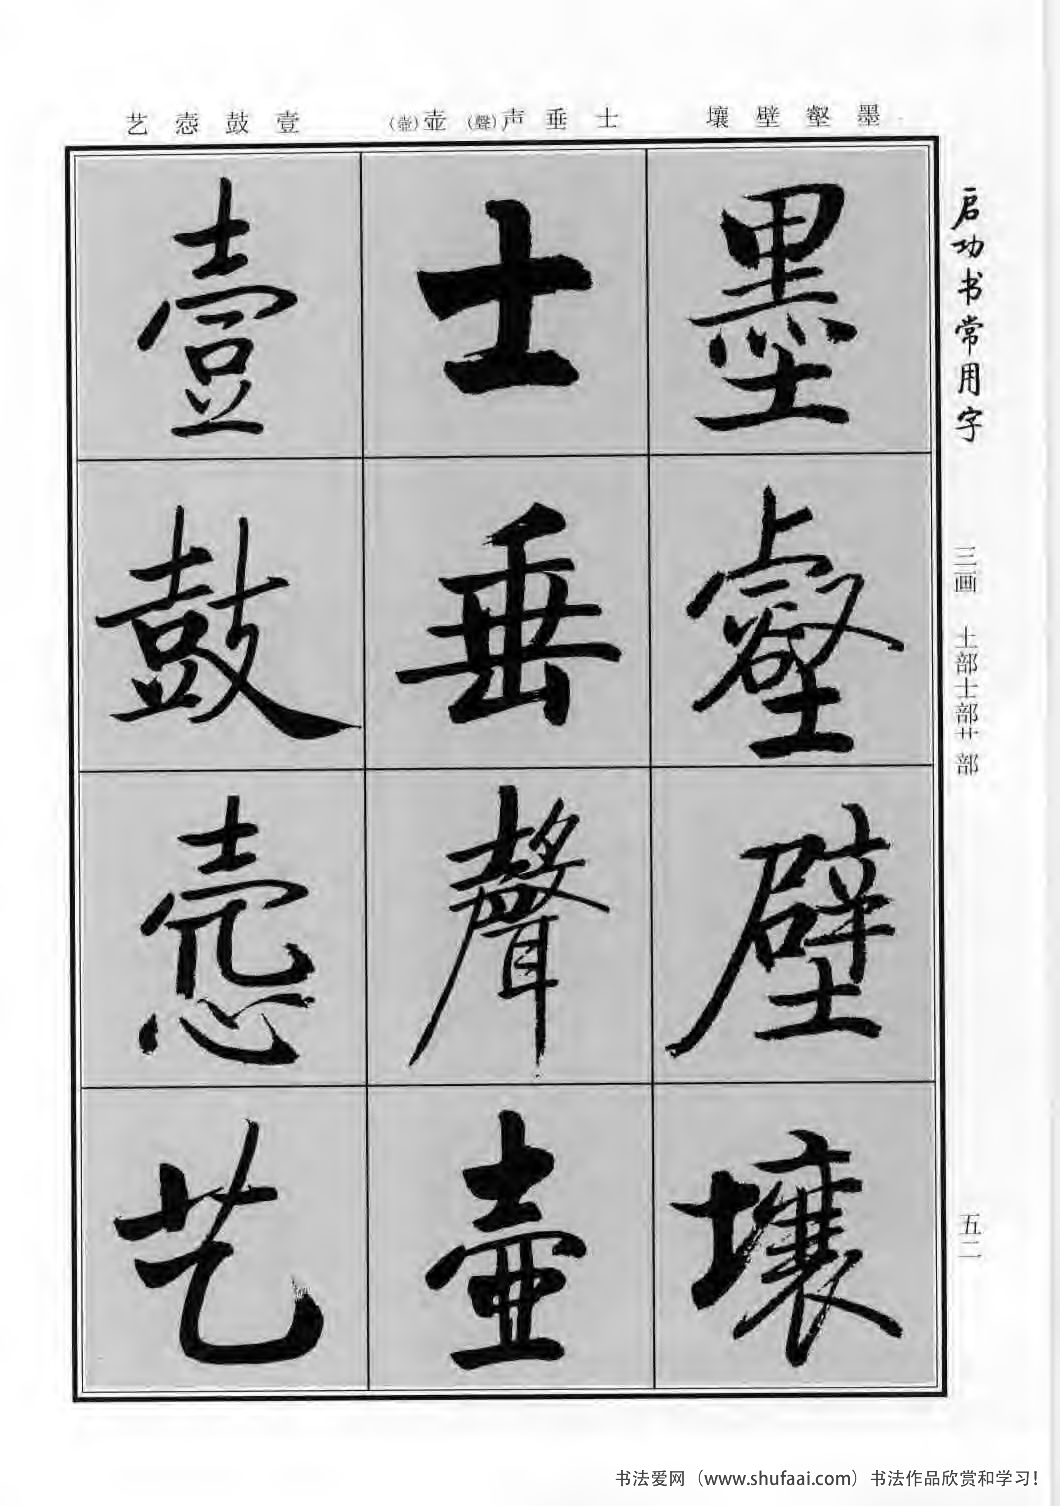 墨壑壁壤 士垂声(聲)壶(壺) 壹鼓悫艺
启功书常用字
三画 土部士部艹部
五二
墨壑壁壤
士垂聲壺
壹鼓悫艺
书法爱网（www.shufaai.com）书法作品欣赏和学习！